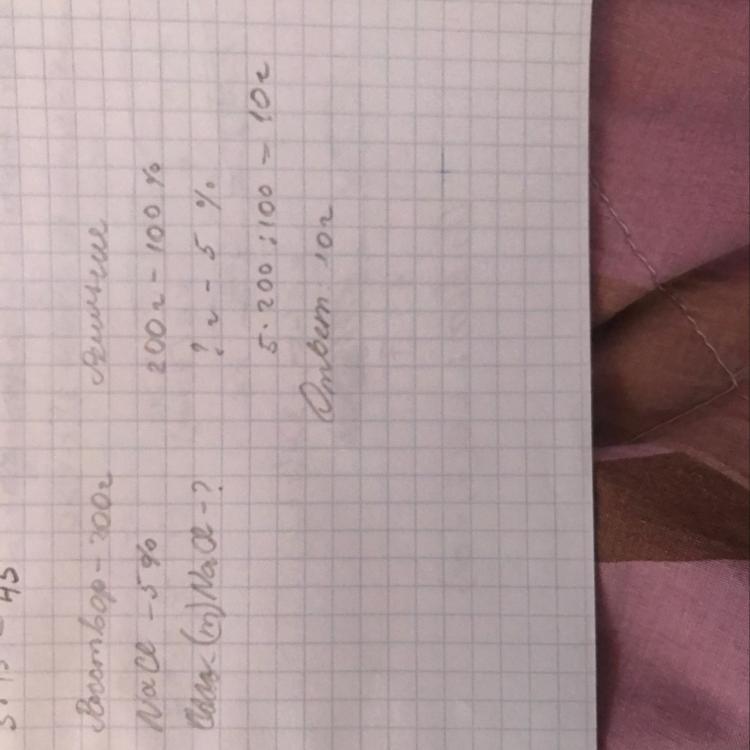 Раствор - 200г
NaCl - 5%
(m) NaCl - ?
Решение
200г - 100 %
? г - 5 %
5 · 200 : 100 = 10г
Ответ: 10г